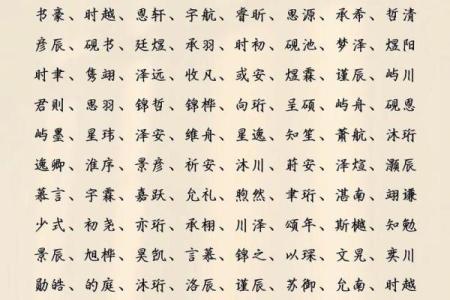 书豪、时越、思轩、宇航、睿昕、思源、承希、哲清
彦辰、砚书、廷煜、承羽、时初、砚池、梦泽、煜阳
时聿、隽翊、泽远、收凡、或安、煜霖、谨辰、屿川
君则、思羽、锦哲、锦桦、向珩、呈硕、屿舟、砚恩
屿墨、星玮、泽安、维舟、星逸、知笙、萧航、沐珩
逸卿、淮序、景彦、祈安、沐川、蔚安、泽煊、灏辰
慕言、宇霖、嘉跃、允礼、煦然、聿珩、湛南、翊谦
少式、初尧、亦珩、承栩、川泽、颂年、斯樾、知勉
景辰、旭桦、昊凯、言慕、锦之、以琛、文晃、奕川
勋皓、的庭、沐珩、洛辰、谨辰、苏御、允南、时越